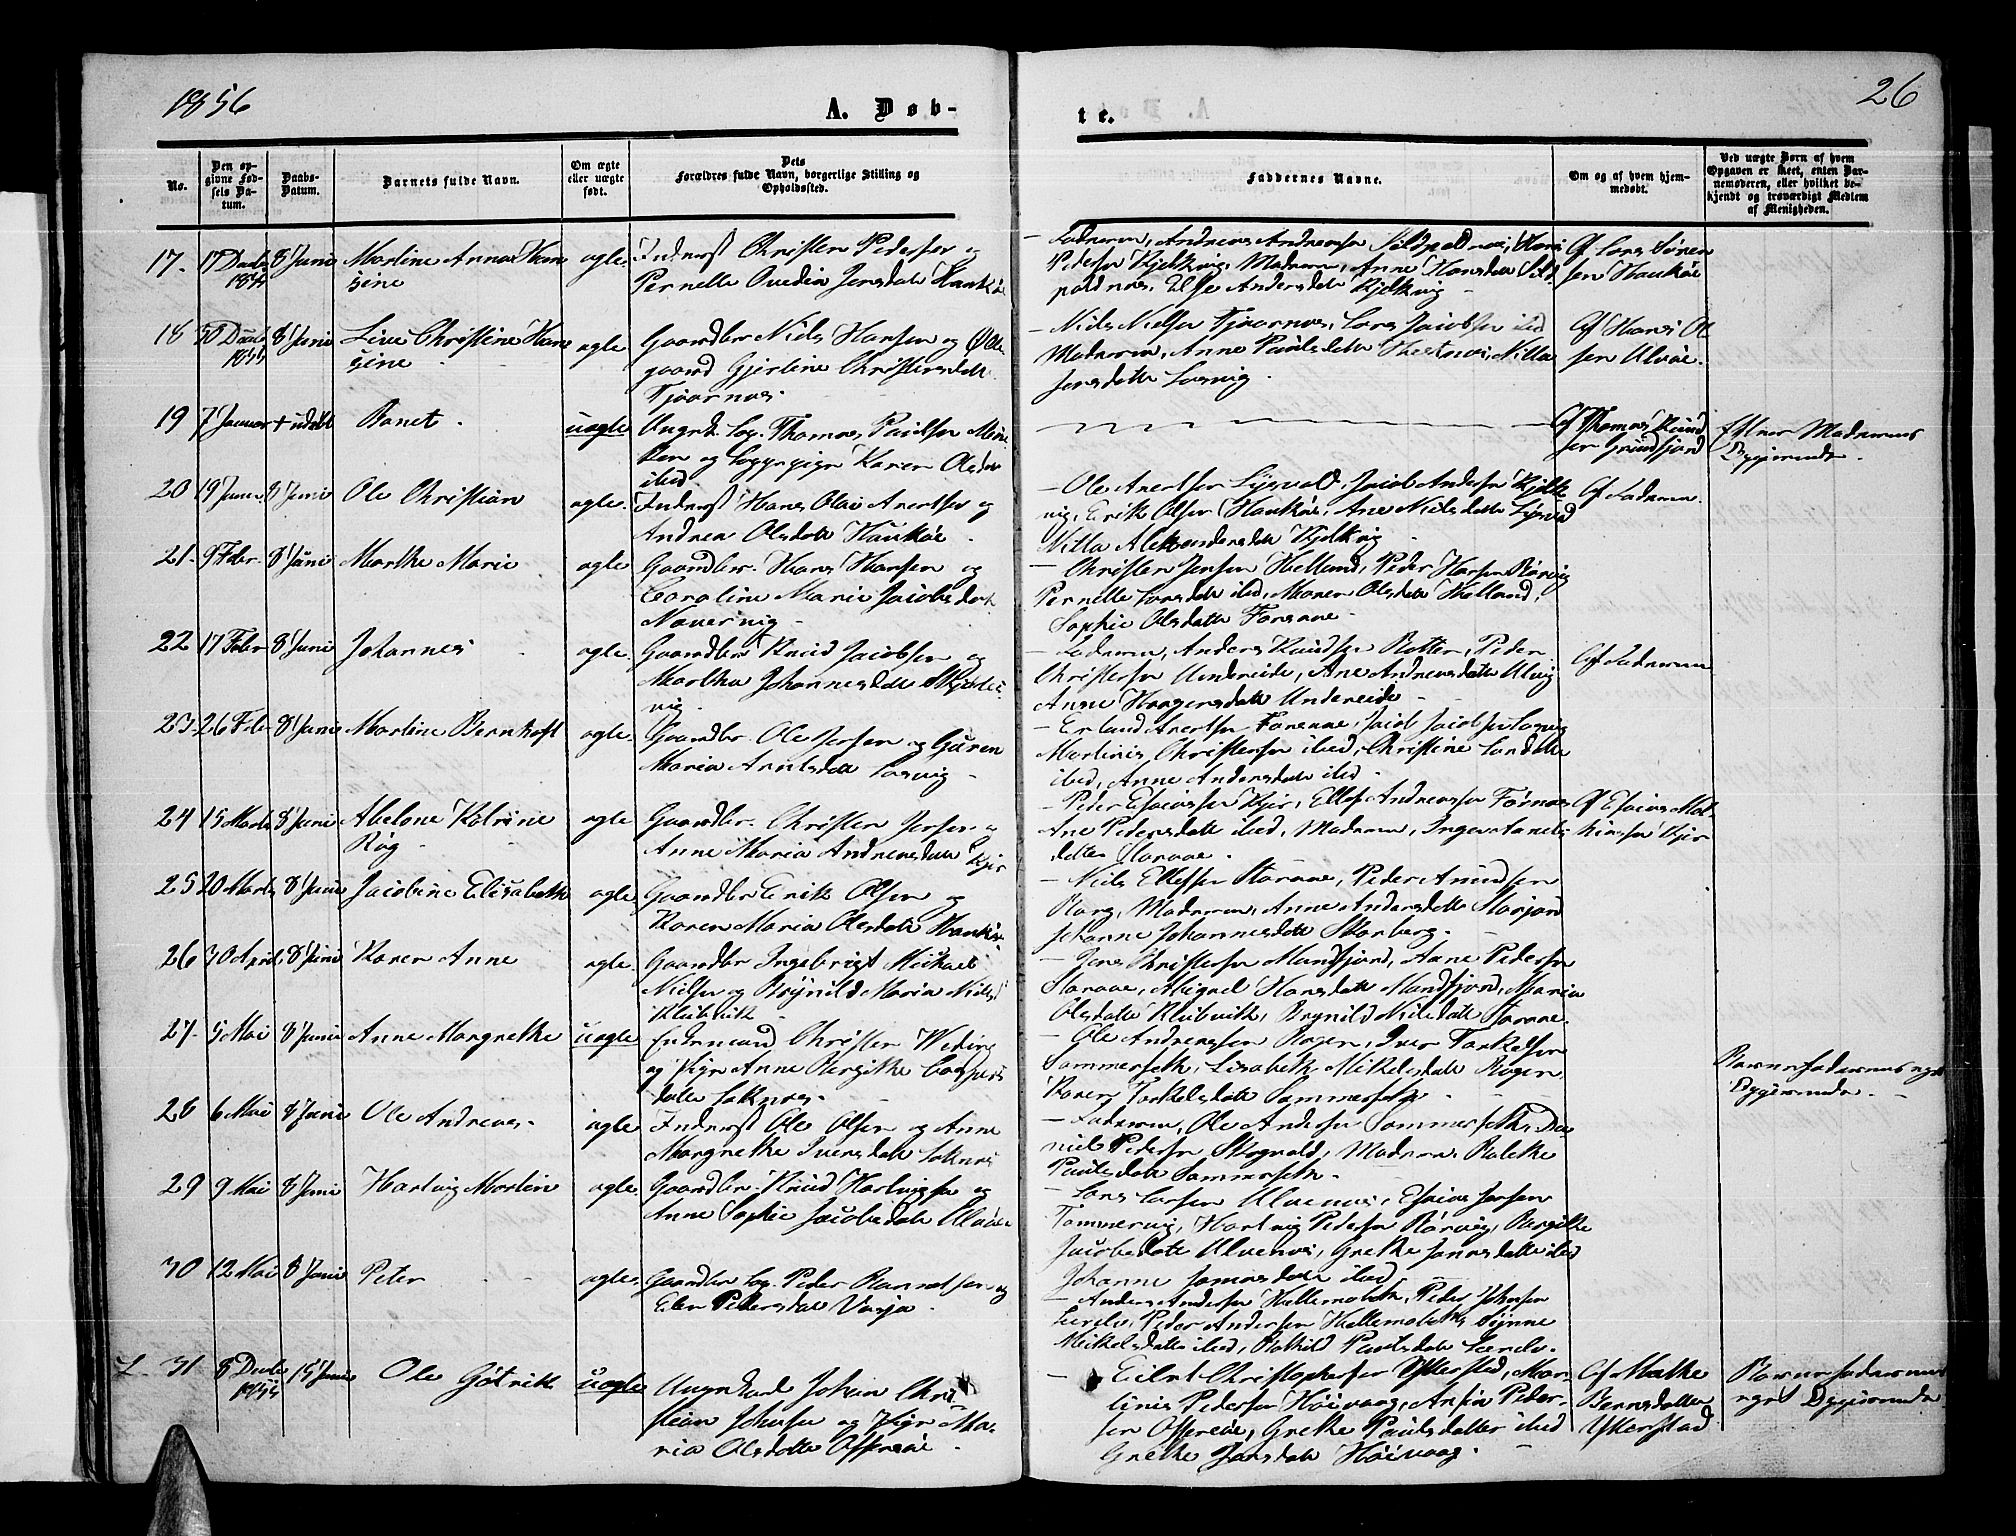 1856
A. Døb-
te.
26
No.
Den op-
givne Fød-
sels Da-
tum.
Daabs-
Datum.
Barnets fulde Navn.
Om ægte
eller uægte
født.
Dets
Forældres fulde Navn, borgerlige Stilling og
Opholdssted.
Faddernes Navne.
Om og af hvem hjem-
medøbt.
Ved uægte Børn af hvem
Opgaven er skeet, enten Bar-
nemoderen, eller hvilket be-
kjendt og troværdigt Medlem
af Menigheden.
17. 17 Decbr 1855 8 Juni Martine Anna Han
sine
ægte Inderst Christen Pedersen og
Pernelle Ovedia Jensdatt Haukøe
- Faderen, Andreas Andreassen
Pedersen Kjelkvig, Moderen, Anne Hansdatt
Else Andersdatt Kjelkvig
Af Lars Søren
sen Haukøe
18 30 Decbr 1855 8 Juni Line Christine Han
sine
ægte Gaardbr Niels Hansen og
Gjertine Christensdatt
Tjaarnes
- Niels Nielsen Tjaarnes, Lars Jacobsen ibid
Moderen, Anne Paulsdatt
Jensdatt Losvig
Af Hans Ol
sen Ulvøe
19 7 Januar + udøbt Barnet
uægte Ungk. Log. Thomas Paulsen
og Loggepige Karen Olsdatt
ibid
Af Thomas Knud
sen Grundfjord
Efter Moderens
Opgivende
20 19 Janu. 8 Juni Ole Christian
ægte Inderst Hans Olai Arentsen og
Andrea Olsdatt Haukøe
- Ole Arentsen Lysvold, Jacob Andersen Kjelk
vig, Erik Olsen Haukøe, Ane Nielsdatt Lysvold
Nilla Aleksandersdatt Kjelkvig
Af Faderen
21. 9 Febr. 8 Juni Marthe Marie
ægte Gaardbr. Hans Hansen og
Caroline Marie Jacobsdatt
Naversvig
- Christen Jensen Helland, Peder Hansen Rørvig
Pernelle Larsdatt ibid, Maren Olsdatt Helland,
Sophie Olsdatt
22 17 Febr 8 Juni Johannes
ægte Gaardbr Knud Jacobsen og
Martha Johannesdatt
vig
- Faderen, Anders Knudsen Botten, Peder
Christensen Undereide, Ane Andreasdatt Ulvig
Anne Haagensdatt Undereide
Af Faderen
23. 26 Febr 8 Juni Martine Bernhoft
ægte Gaardbr Ole Jensen og Guren
Maria Arntsdatt Losvig
- Erland Arentsen Jacob Jacobsen Losvig
Martinis Christensen ibid, Christine Larsdatt
ibid, Anne Andersdatt ibid
24 15 Marts 8 Juni Abelone Katrine
Røg
ægte Gaardbr. Christen Jensen og
Anne Maria Andreasdatt Kjær
- Peder Esaiassen Kjær, Ellef Andreassen
Ane Pedersdatt ibid, Moderen, Inger
datter Storaae
Af Esaias
Kjær
25 20 Marts 8 Juni Jacobine Elisabeth
ægte Gaardbr Erik Olsen og
Karen Maria Olsdatt Haukøe
- Niels Ellefsen Storaae, Peder Amundsen
Moderen, Anne Andersdatt Storjord
Johanne Johannesdatt Skarberg
26 30 April 8 Juni Karen Anne
ægte Gaardbr Ingebrigt Mikael
Nielsen og Brynild Maria Nielsd
Klubvik
- Jens Christensen Mandfjord, Hans Pedersen
Storaae, Abigael Hansdatt Mandfjord, Maria
Olsdatt Klubvik, Brynild Nilsdatt Storaae
27. 5 Mai 8 Juni Anne Margrethe
uægte Enkemand Christen Weding
og Pige Anne Bergitte Caspers
datter Saknes
- Ole Andreassen Rogen, Iver Torkelsen
Sommerseth, Lisabeth Mikelsdatt Rogen
Karen Torkelsdatt Sommerseth
Barnefaderens eget
Opgivende
28 6 Mai 8 Juni Ole Andreas
ægte Inderst Ole Olsen og Anne
Margrethe Iversdatt Saknes
- Faderen, Ole Andersen Sommerseth, Da
niel Pedersen Skogvold, Moderen,
Paulsdatt Sommerseth
29 9 Mai 8 Juni Hartvig Martin
ægte Gaardbr. Knud Hartvigsen og
Anne Sophie Jacobsdatt Ulvøe
- Lars Larsen Ulvenes, Esaias Jensen
Tømmervig, Hartvig Pedersen Rørvig, Bergitte
Jacobsdatt Ulvenes, Grethe Jonasdatter ibid
Johanne Jonasdatt ibid
30 12 Mai 8 Juni Peter
ægte Gaardbr Log. Peder Berntsen og
Elen Pedersdatt Vasja
- Anders Andersen Hellemobotn, Peder Johnsen
Peder Andersen Hellemobotn, Synne
Mikkelsdatt ibid, Paulsdatt
L. 31 8 Decbr 1855 15 Juni Ole Gotrik
uægte Ungkarl Johan Chri
stian Johnsen og Pige Ma
ria Olsdatter Offersøe
- Eilert Christophersen Ykerstad, Mar
tinis Pedersen Høievaag, Anfin Peder-
sen Offersøe, Grethe Paulsdatter ibid
Grethe Jensdatt Høievaag
Af Malke
Berntsdatter
Ykerstad
Barnefaderens
eget Opgivende